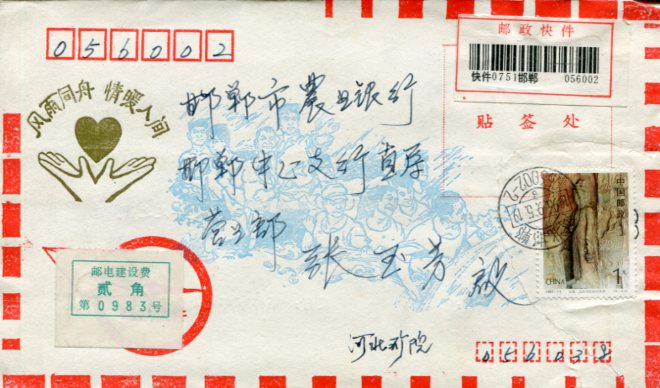 056002
风雨同舟 情暖人间
邮政快件
快件0751邯郸 056002
贴签处
邯郸市農业银行
邯郸中心支行直属
营业部 张玉芳 收
中国邮政
CHINA
1
邮电建设费
贰角
第0983号
河北矿院
056038